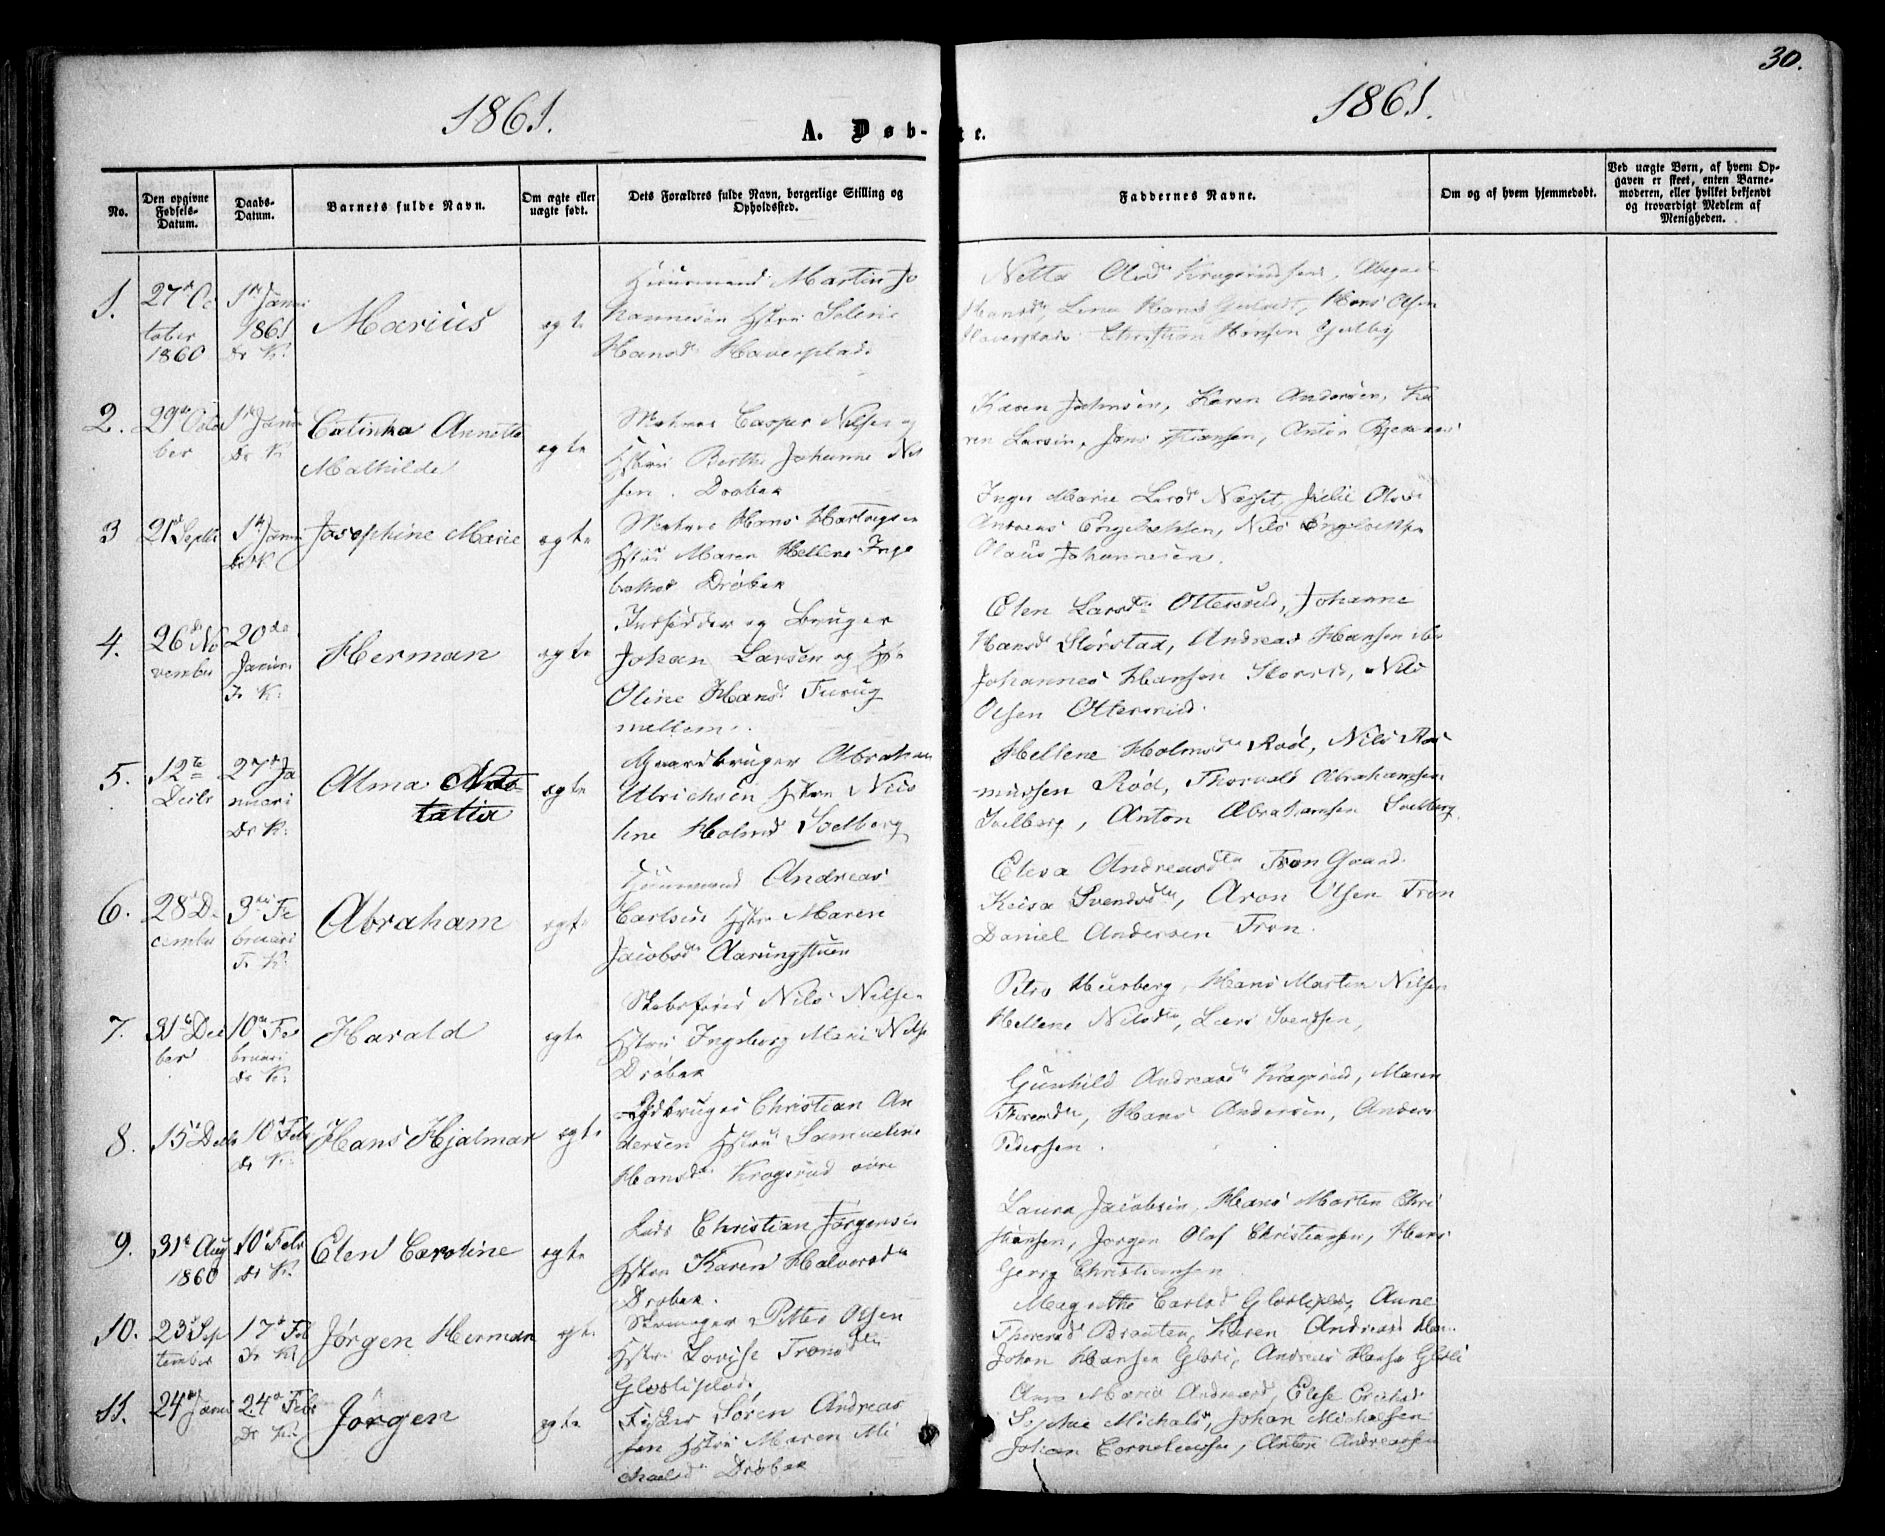 30.
1861.
1861.
A. Døb-
te.
No.
Den opgivne Fødsels-Datum.
Daabs-Datum.
Barnets fulde Navn.
Om ægte eller uægte født.
Dets Forældres fulde Navn, borgerlige Stilling og Opholdssted.
Faddernes Navne.
Om og af hvem hjemmedøbt.
Ved uægte Børn, af hvem Opgaven er skeet, enten Barnemoderen, eller hvilket bekjendt og troværdigt Medlem af Menigheden.
1.
27de Oc
tober
1860
1ste Janu
1861
Dr K.
Marius
egte
Huusmand Martin Jo
hannesen Hstru
Hansd Haverplads
Hansd Lina Hansd Hans Olsen
Haverplads Christian Hansen
2.
29de Octo
ber
1ste Janu
Dr K
Catinka Annette
Mathilde
egte
Matros Casper Nilsen og
Hstru Berthe Johanne Nil
sen. Drøbak
Karen Johnsen, Karen Andersen, Ka
ren Larsen, Jens Hansen, Anton
3
21de Septbr
1ste Janu
Dr K
Josephine Marie
egte
Matros Hans Hartvigsen
Hstru Maren Hellene Inge
Drøbak
Inger Marie Larsd Næsset, Julie
Andreas Engebretsen, Nils Engebretsen
Olaus Johannesen.
4.
26de No
vember
20de
Januri
Fr K.
Herman
egte
Indsidder og Bruger
Johan Larsen og Hstr
Oline Hansd
mellem.
Elen Larsdtr Ottersrud, Johanne
Hansd Storstad, Andreas Hansen ibd
Johannes Hansen, Nils
Olsen Ottersrud.
5.
12te
Decbr
27de Ja
nuari
Dr K.
Alma
egte
Gaardbruger Abraham
Ulrichsen Hstru Nico
line Holmsd Soelberg
Hellene Holmsdtr Rød, Nils Ras
mussen Rød, Thorvald Abrahamsen
Soelberg, Anton Abrahamsen Soelberg.
6.
28de De
cember
3die Fe
bruari
Fr K.
Abraham
egte
Huusmand Andreas
Carlsen Hstru Maren
Jacobsd Aarungstuen
Elesa Andreasdtr Fron Gaard.
Keisa Svendsdtr, Aron Olsen Fron
Daniel Andersen Fron.
7.
31te De
br
10de Fe
bruari
Dr K.
Harald
egte
Skibsfører Nils Nilsen
Hstru Ingeborg Marie Nilse
Drøbak
Petra Husberg, Hans Martin Nilsen
Hellene Nilsdtr, Lars Svendsen,
8.
15de Decbr
10de Febr
Dr K.
Hans Hjalmar
egte
Christian An
dersen Hstru Samueline
Hansdtr Kragsrud øvre
Gunhild Andreasdtr Kragsrud, Maren
Thoresdtr, Hans Andersen, Anders
Pedersen.
9.
31te Aug
1860
10de Febr
Dr K.
Elen Caroline
egte
Lods Christian Jørgensen
Hstru Karen Halvorsdtr
Drøbak.
Laura Jacobsen, Hans Martin Chri
stiansen, Jørgen Olaf Christiansen, Hans
Georg Christiansen
10.
23de Sep
tember
17de Feb
Fr K.
Jørgen Herman
egte
Petter Olsen
Hstru Lovise Tronsdtr
Glosliplads.
Magrethe Carlsd Glosliplads, Anne
Thoresd Braaten, Karen Andreasd
Johan Hansen Glosli, Andreas Hansen Glosli
11.
24de Janri
24de Febr
Dr K.
Jørgen
egte
Fisker Søren Andreas
sen Hstru Maren Mi
chaelsdtr Drøbak
Marie Andreasd, Elese
Sophie Michalsdtr, Johan Michelsen
Johan Corneliussen, Anton Andreassen